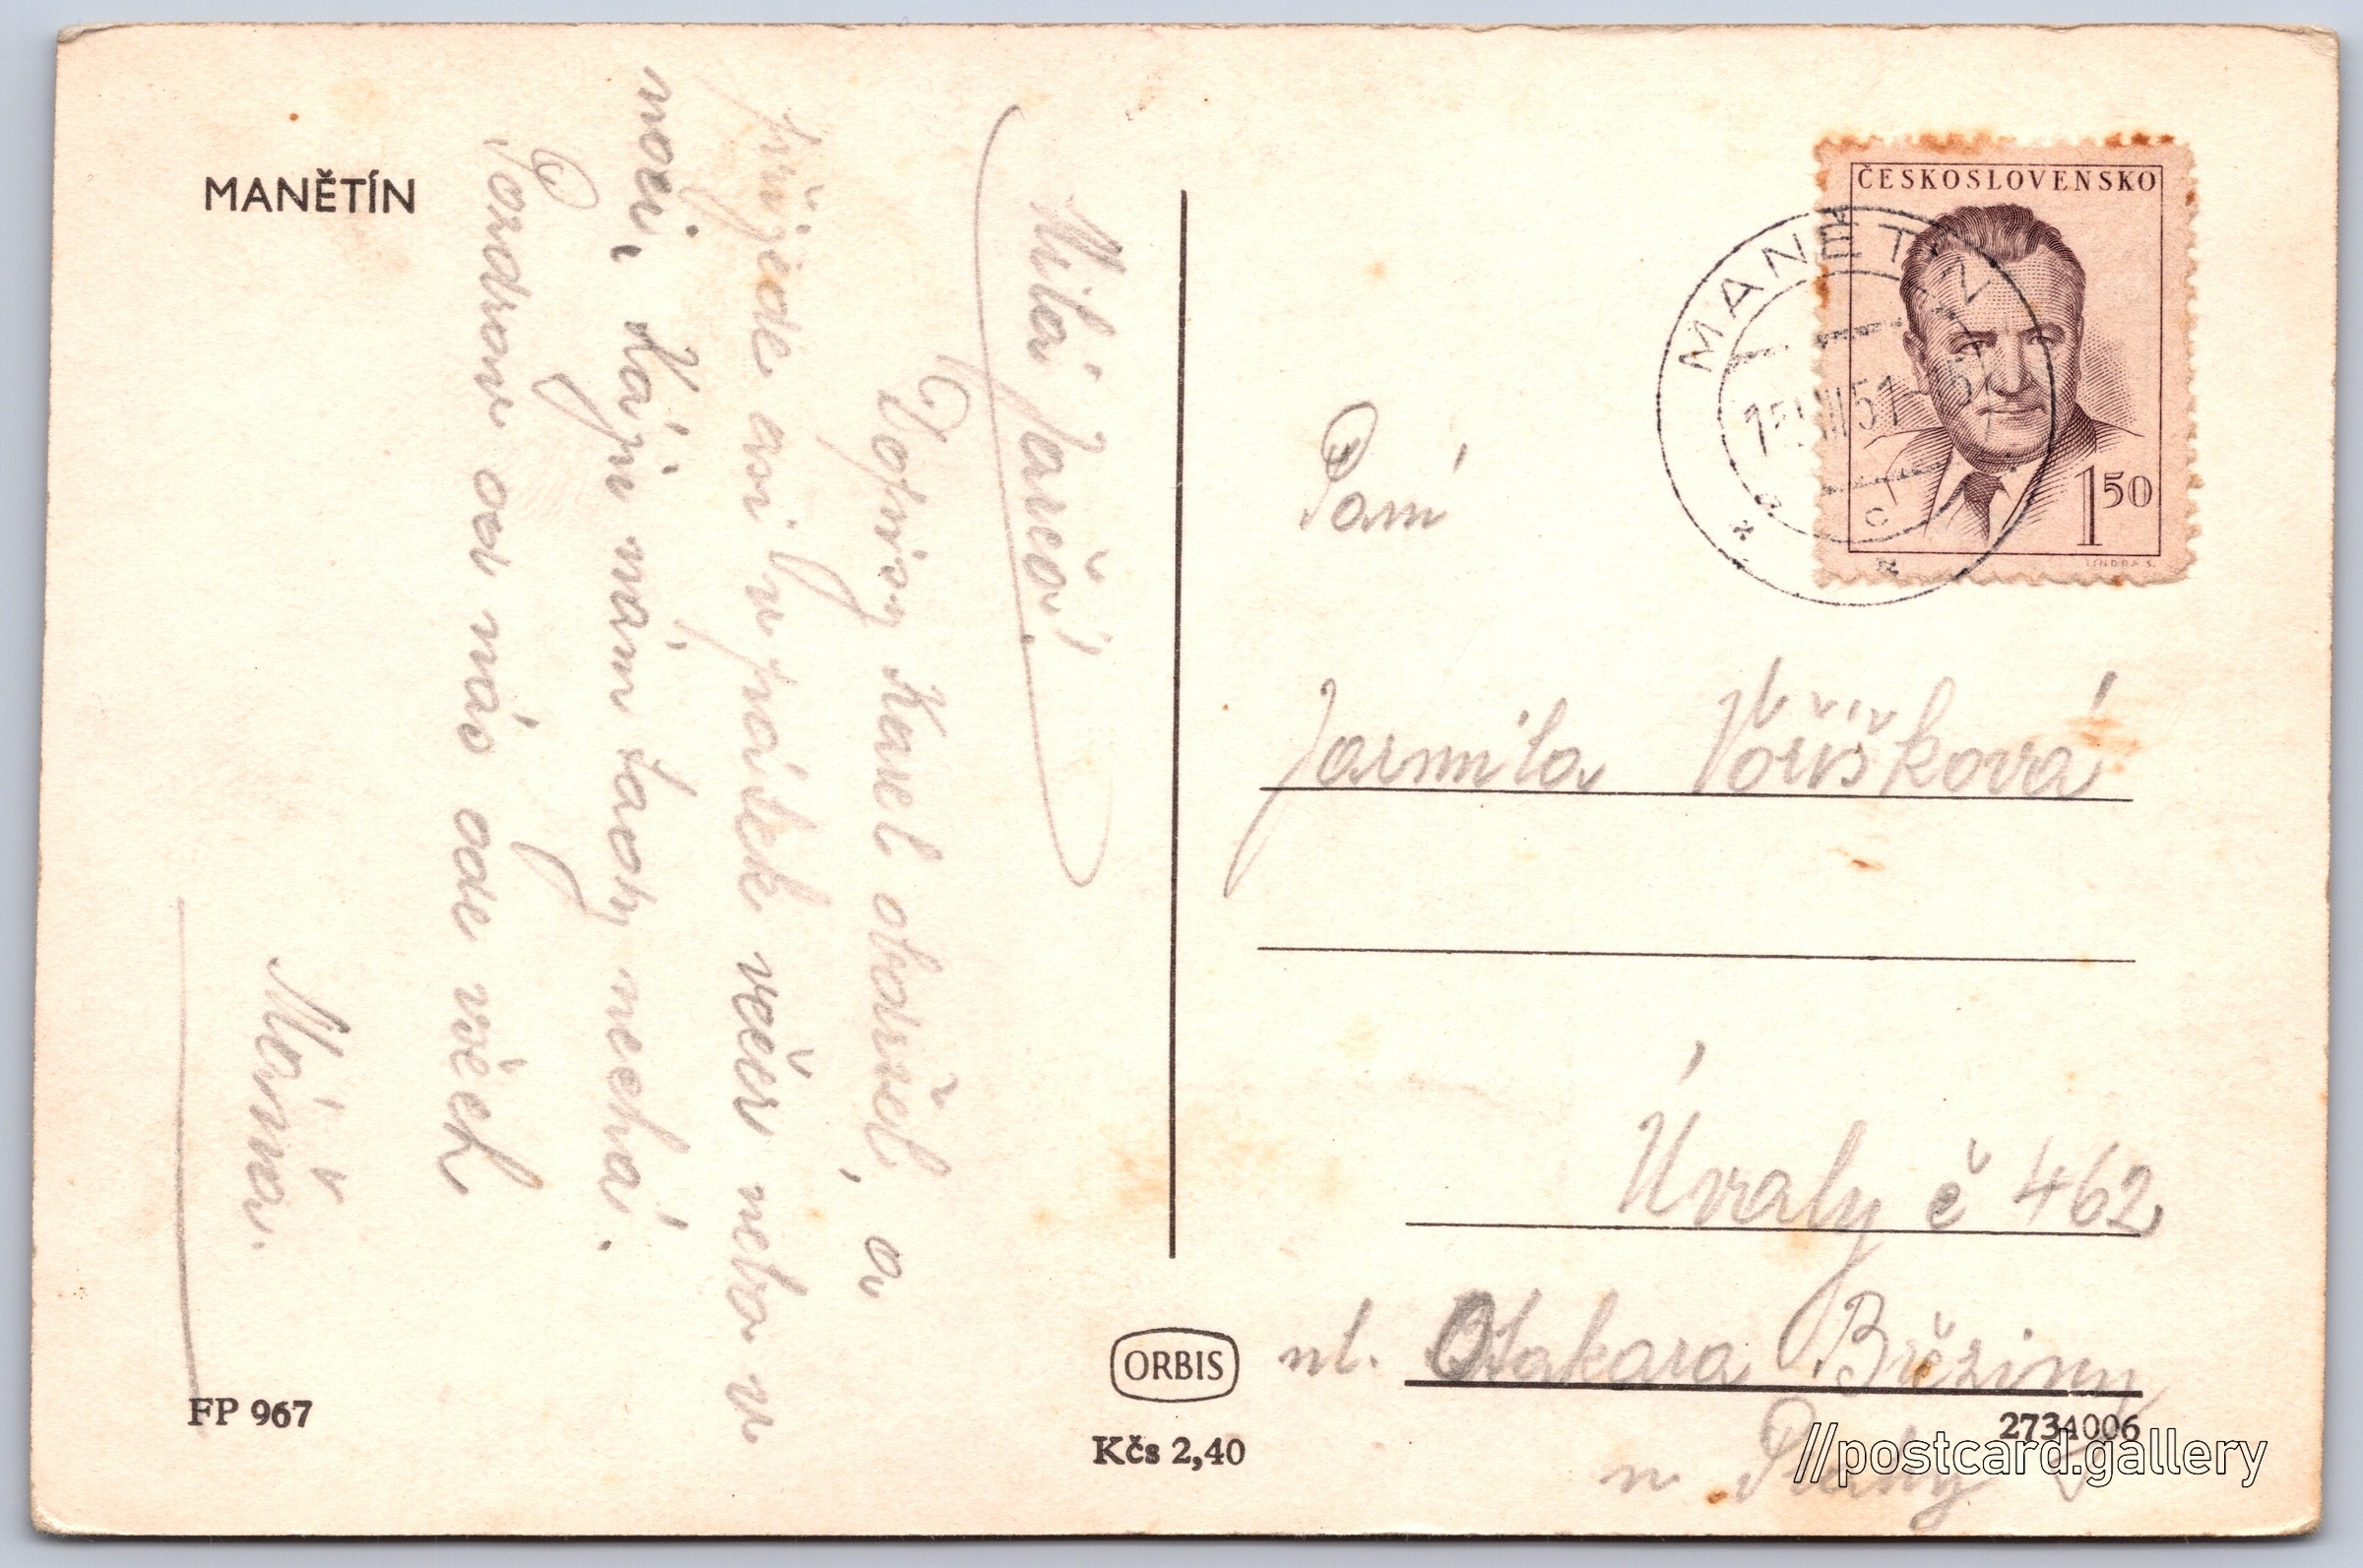 MANĚTÍN
Milá Jarčo!
Dopisy Karel obdržel, a
přijede asi v pátek večer nebo v
noci, Káju mám tady nechá.
Pozdrav od nás ode všech
Máňa.
ČESKOSLOVENSKO
1 50
MANĚTÍN
Paní
Jarmila Voříšková
Úvaly č 462
ul. Otakara Březiny
u Prahy
ORBIS
Kčs 2,40
FP 967
2734006
//postcard.gallery